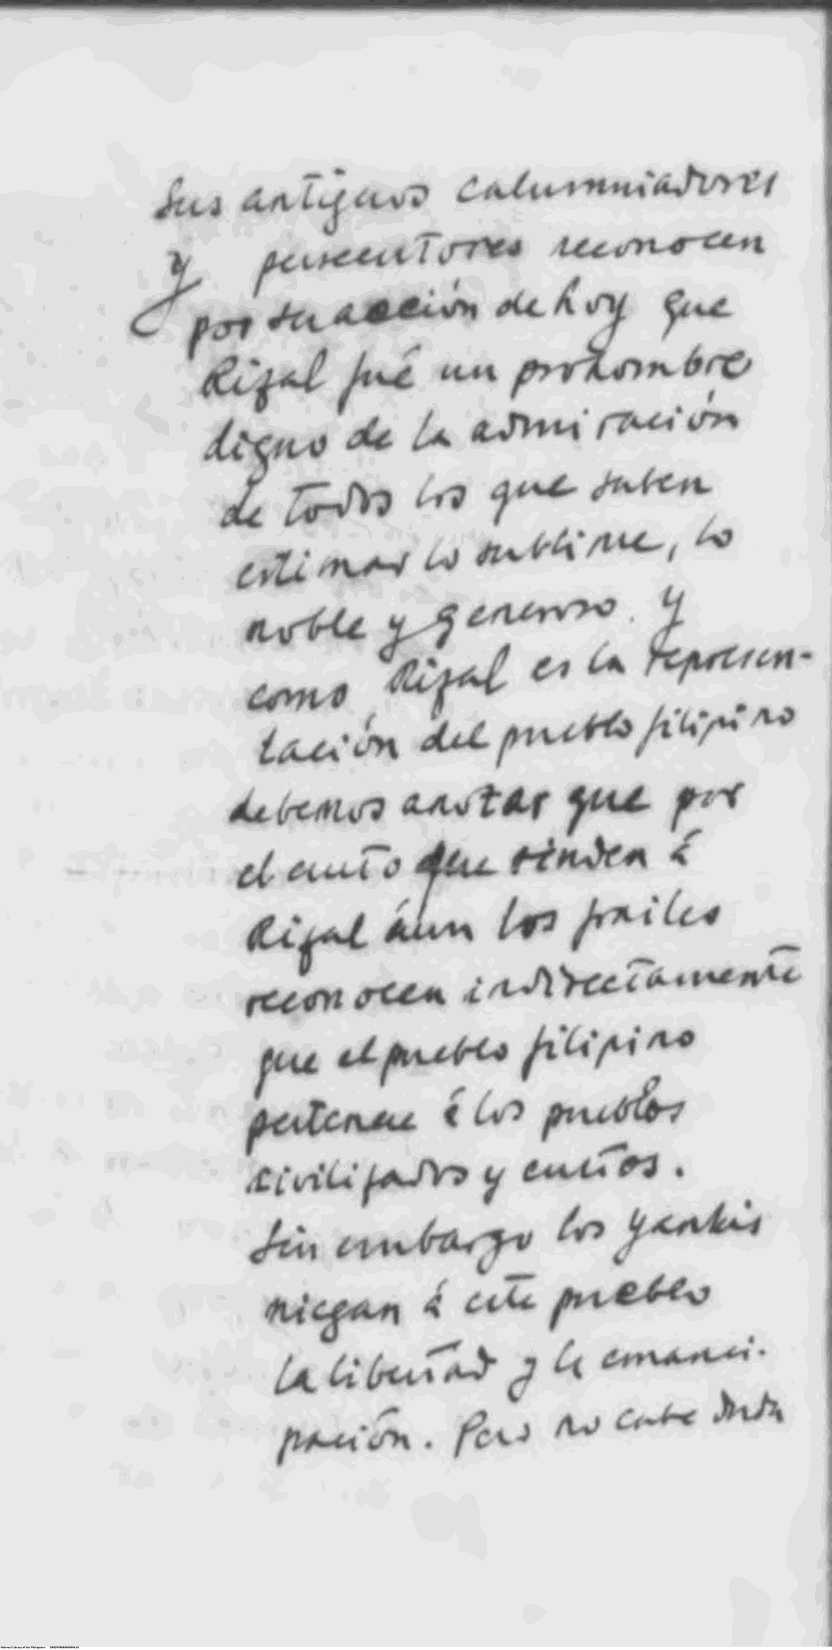 Sus antiguos calumniadores
y persecutores reconocen
por su acción de hoy que
Rizal fué un prohombre
digno de la admiración
de todos los que saben
estimar lo sublime, lo
noble y generoso. y
como Rizal es la represen-
tación del pueblo filipino
debemos anotar que por
el culto que rinden á
Rizal áun los frailes
reconocen indirectamente
que el pueblo filipino
pertenece á los pueblos
civilizados y cultos.
Sin embargo los yankis
niegan á este pueblo
la libertad y la emanci-
pación. Pero no cabe duda